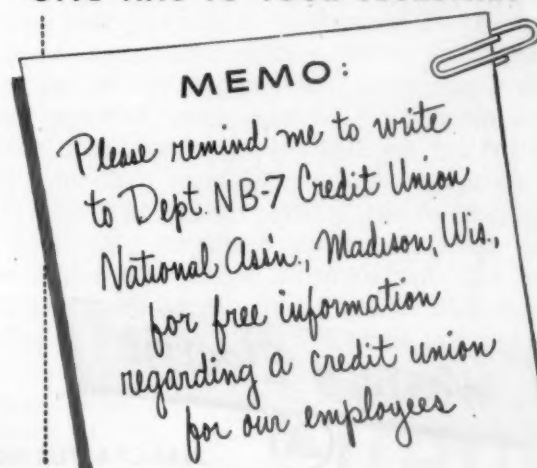 MEMO:
Please remind me to write
to Dept. NB-7 Credit Union
National Ass'n., Madison, Wis.,
for free information
regarding a credit union
for our employees